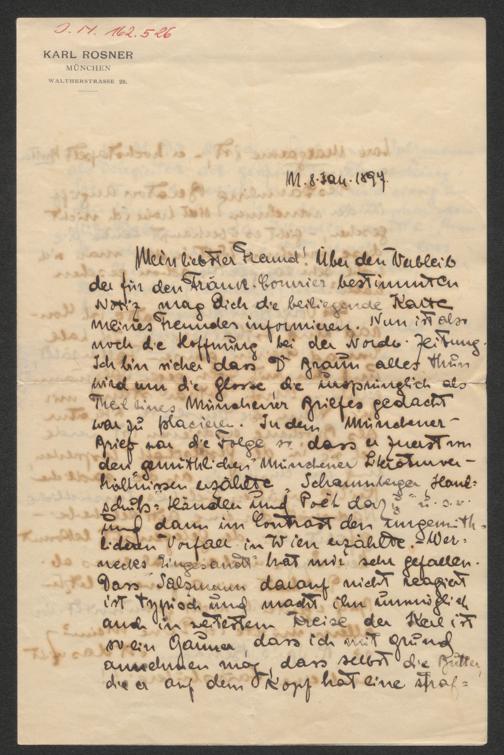 J. N. 162.526
KARL ROSNER
MÜNCHEN
WALTHERSTRASSE 22.
M. 8. Jan. 1897.
Mein liebster Freund! Über den Verbleib
der für den Fränk. Courier bestimmten
Notiz mag Dich die beiliegende Karte
meines Freundes informieren. Nun ist also
noch die Hoffnung bei der Nordd. Zeitung.
Ich bin sicher dass Dr Braun alles thun
wird um die Glosse die ursprünglich als
Theil eines Münchener Briefes gedacht
war zu placieren. In dem Münchener-
Brief war die Folge so dass er zuerst von
den "gemüthlichen" Münchener Literaturver-
hältnissen erzählte, Schaumberger Hand-
schuh-Händler und Poet dazu" u. s. w.
und dann im Contrast den ungemüth-
lichen Vorfall in Wien erzählte. Wer-
neckes "Eingesandt" hat mir sehr gefallen.
Dass Salzmann darauf nicht reagiert
ist typisch und macht ihn unmöglich
auch in weitestem Kreise der Kerl ist
so ein Gauner, dass ich mit Grund
annehmen mag, dass selbst die Butter,
die er auf dem Kopf hat eine straf=